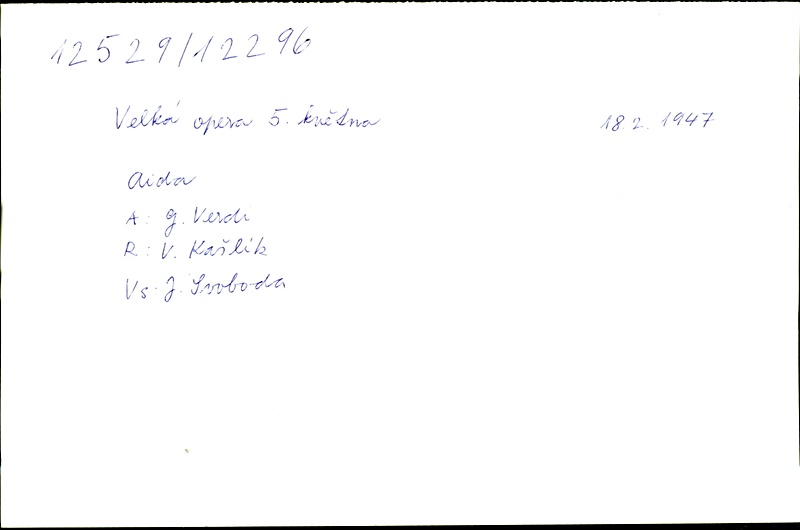 12529/12296
Velká opera 5. května 18.2.1947
Aida
A: G. Verdi
R: V. Kašlík
Vs: J. Svoboda